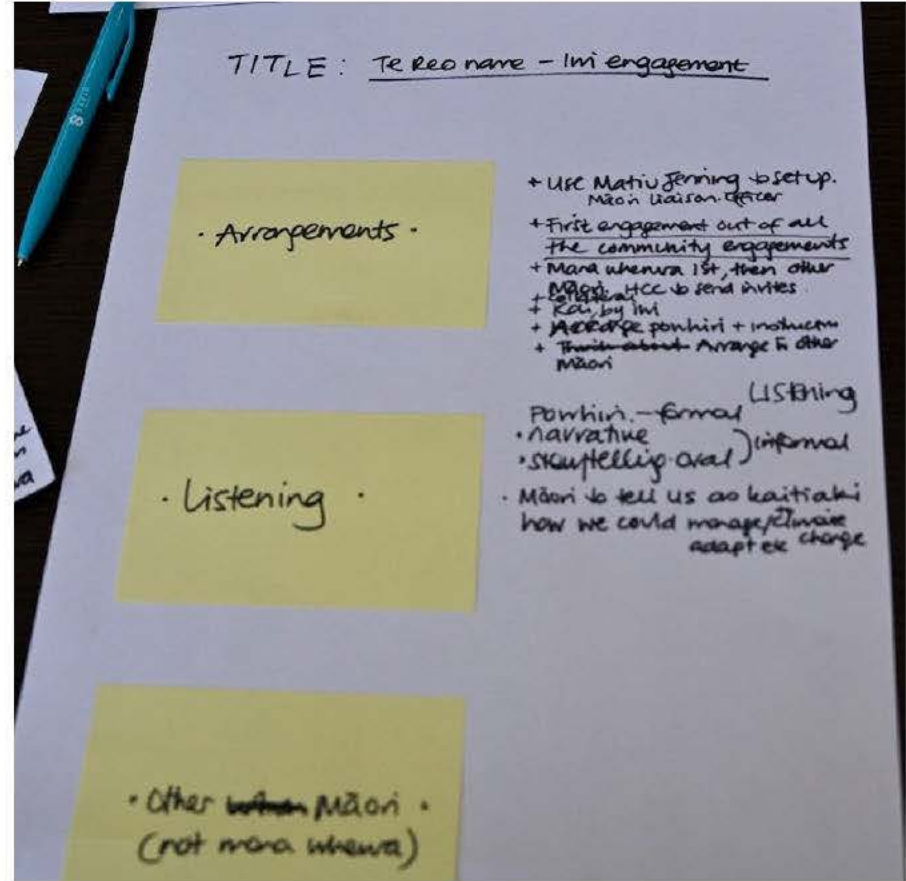 TITLE: Te Reo name - Iwi engagement
· Arrangements ·
+ Use Matiu Jenning to setup.
Māori Liaison Officer
+ First engagement out of all
the community engagements
+ Mana whenua 1st, then other
Māori. HCC to send invites
+ Kai, by iwi
+ powhiri +
+ Arrange to other
Māori
· Listening ·
Powhiri - formal Listening
· narrative
· storytelling-oral ) informal
· Māori to tell us as kaitiaki
how we could manage/climate
adapt etc change
· Other Māori ·
(not mana whenua)